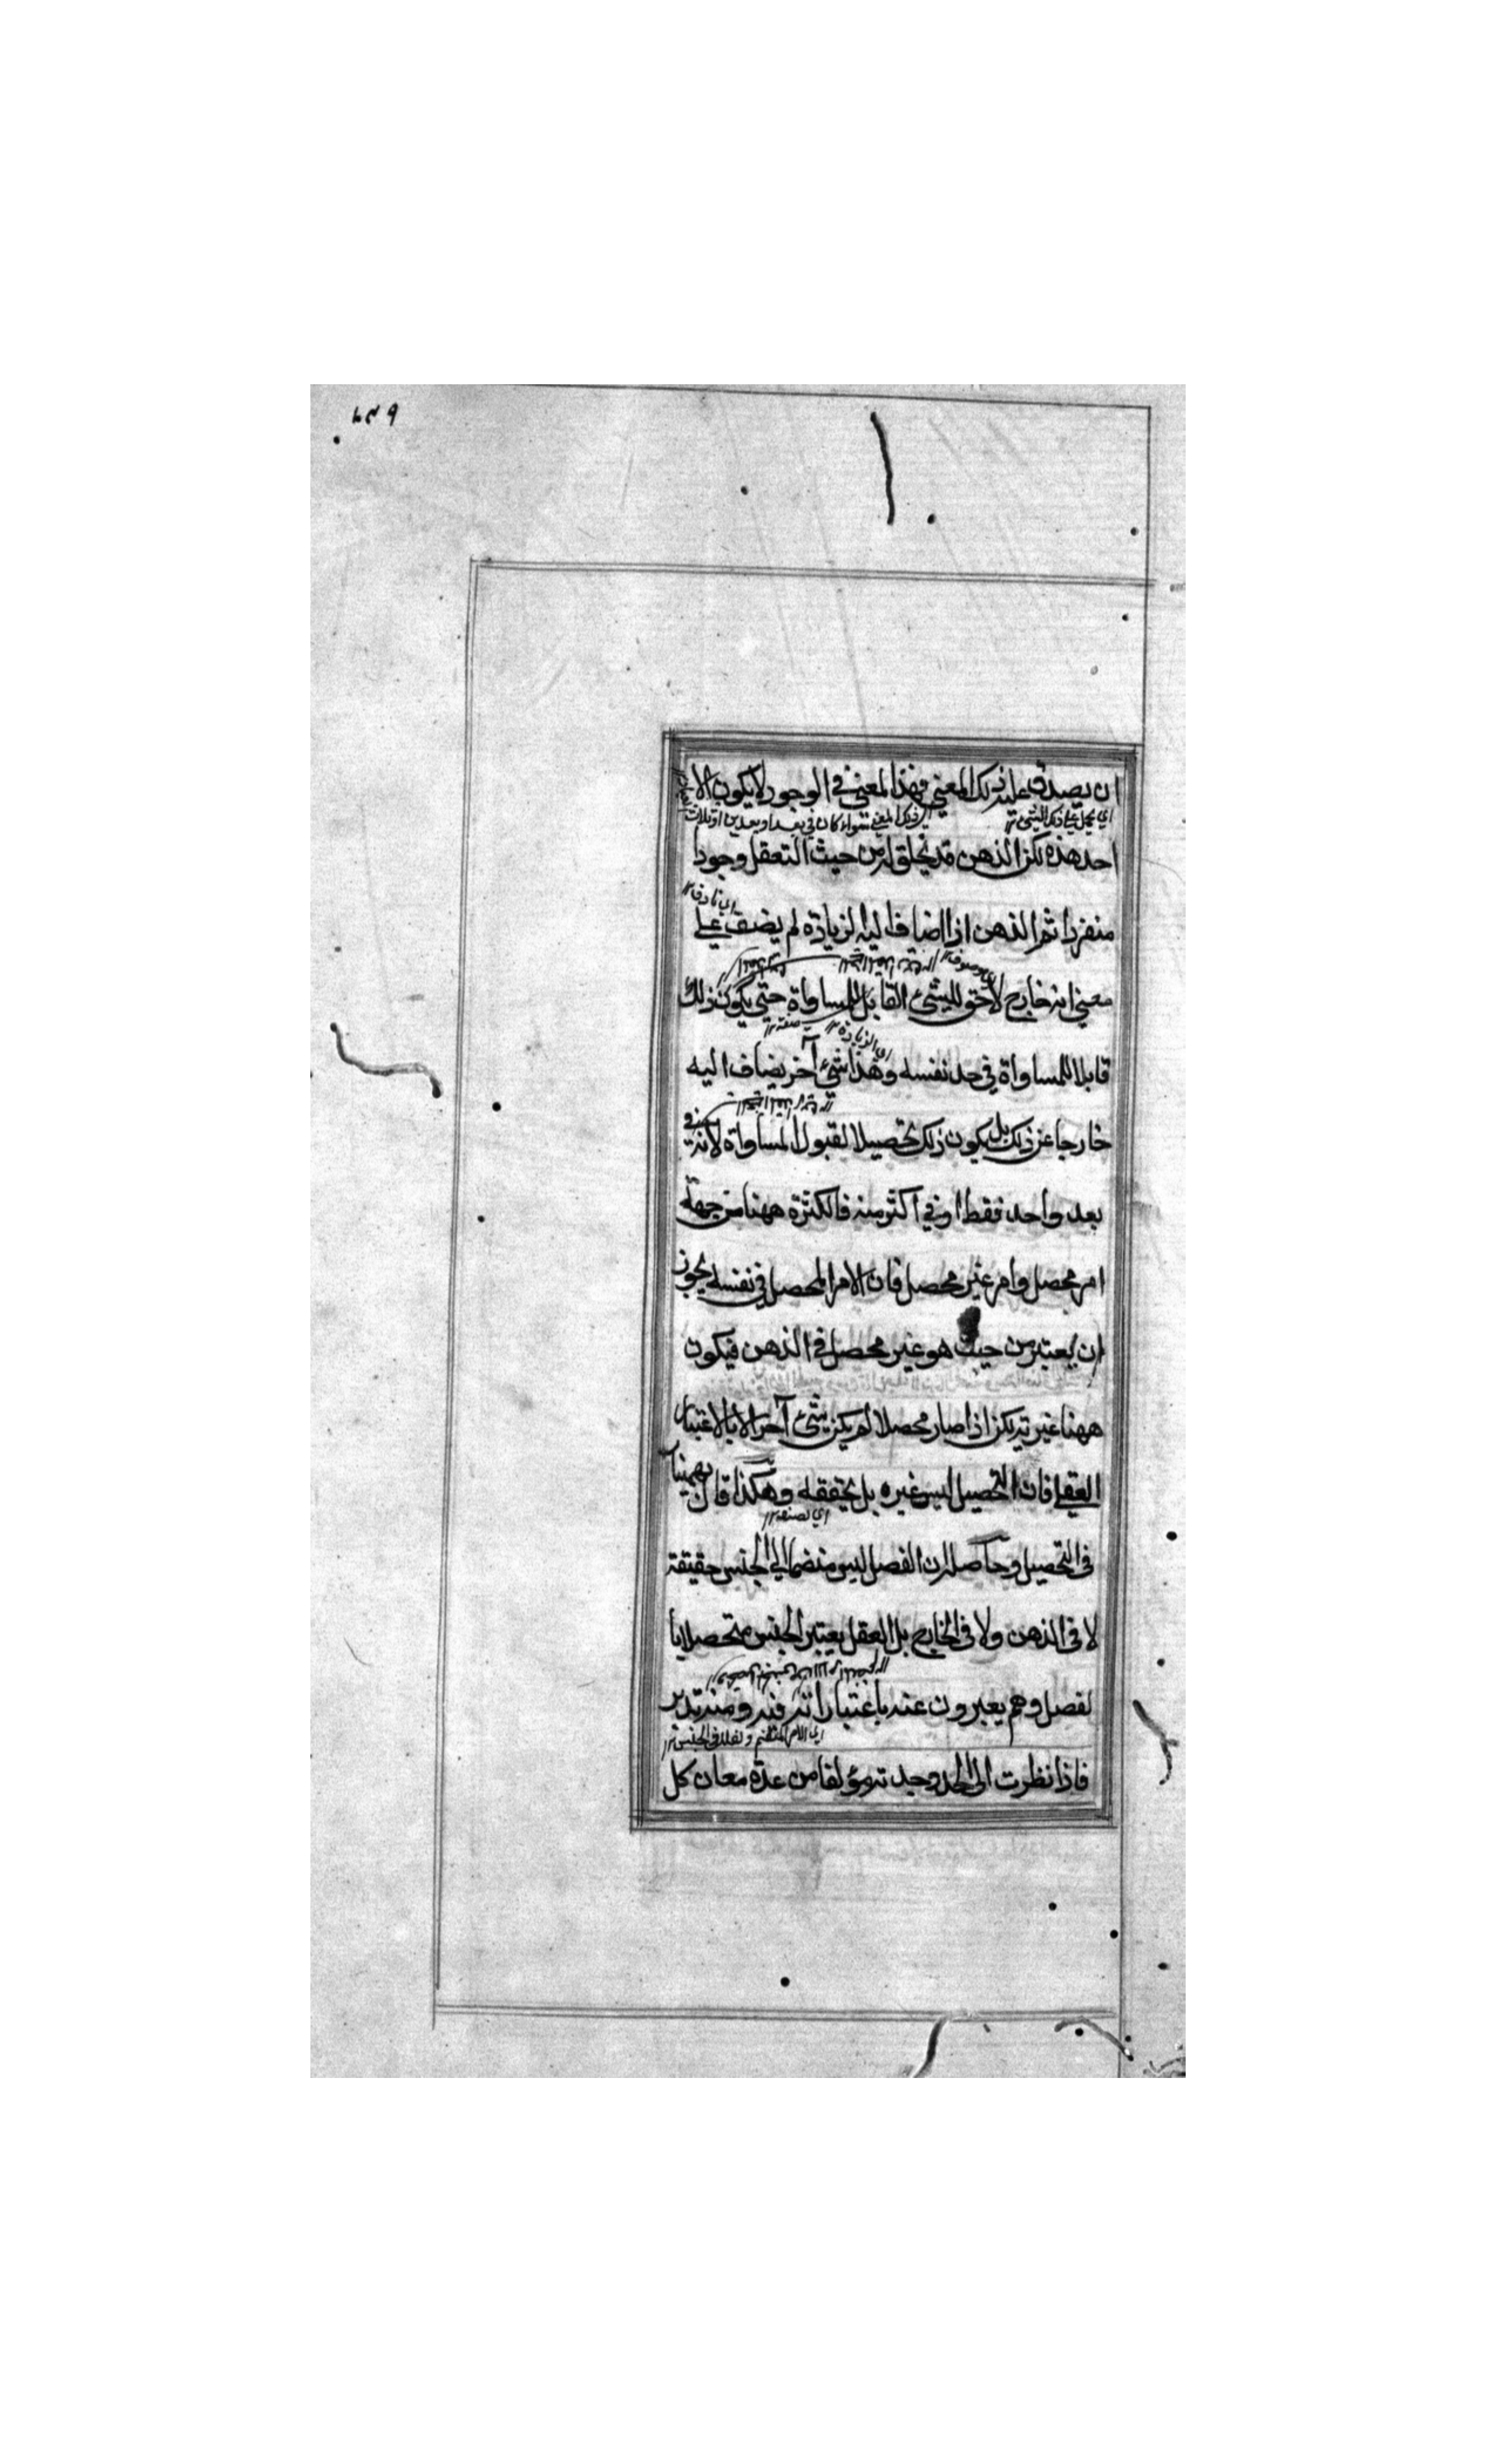 ان يصدق عليه ذلك المعني فهذا المعني في الوجود لا يكون الا
اي يحمل علي ذلك الشئ ١٢ ذلك المعني سواء كان في بعد او بعدين او ثلاث
احد هذه لكن الذهن قد يخلق له من حيث التعقل وجودا
منفردا ثم الذهن اذا اضاف اليه الزيادة لم يضف علي
معني انه خارج لاحق للشئ القابل للمساواة حتي يكون ذلك
اي الزيادة ١٢
قابلا للمساواة في حد نفسه وهذا شئ آخر يضاف اليه
خارجا عن ذلك بل يكون ذلك تحصيلا لقبول المساواة لانه في
بعد واحد فقط او في اكثر منه فالكثرة ههنا من جهة
امر محصل وامر غير محصل فان الامر المحصل في نفسه يجوز
ان يعتبر من حيث هو غير محصل في الذهن فيكون
ههنا غيرية لكن اذا صار محصلا لم يكن شئ آخر الا بالاعتبار
العقلي فان التحصيل ليس غيره بل يحققه وهكذا قال بهمنيار
في التحصيل وحاصله ان الفصل ليس منضما الي الجنس حقيقة
لا في الذهن ولا في الخارج بل العقل يعتبر الجنس متحصلا با
لفصل وهم يعبرون عنه باعتبار انه فيه ومنه تدبر
فاذا نظرت الي الحد وجدته مؤلفا من عدة معان كل